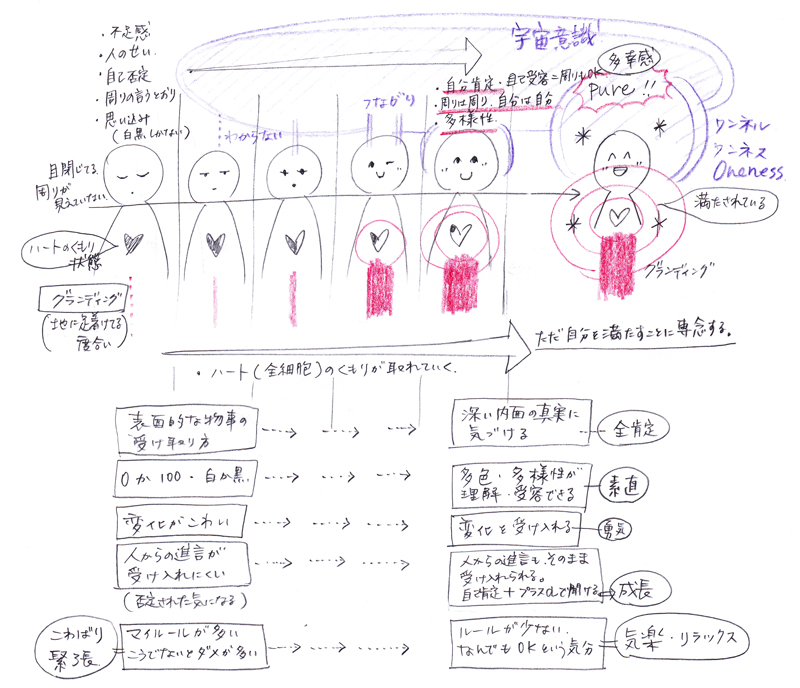 ・不足感
・人のせい
・自己否定
・周りの言うとおり
・思い込み
(白黒しかない)
宇宙意識
多幸感
Pure!!
・自分肯定・自己受容=周りもOK
・周りは周り、自分は自分
・多様性
つながり
わからない
ワンネル
ワンネス
Oneness
目閉じてる
周りが
見えていない
満たされている
ハートのくもり
状態
グランディング
グランディング
(地に足着けてる
度合い)
ただ自分を満たすことに専念する。
・ハート(全細胞)のくもりが取れていく
表面的な物事の
受け取り方
深い内面の真実に
気づける
全肯定
0か100・白か黒
多色・多様性が
理解・受容できる
素直
変化がこわい
変化を受け入れる
勇気
人からの進言が
受け入れにくい
(否定された気になる)
人からの進言も、そのまま
受け入れられる。
自己肯定+プラスαで聞ける
成長
こわばり
緊張
マイルールが多い
こうでないとダメが多い
ルールが少ない
なんでもOKという気分
気楽・リラックス